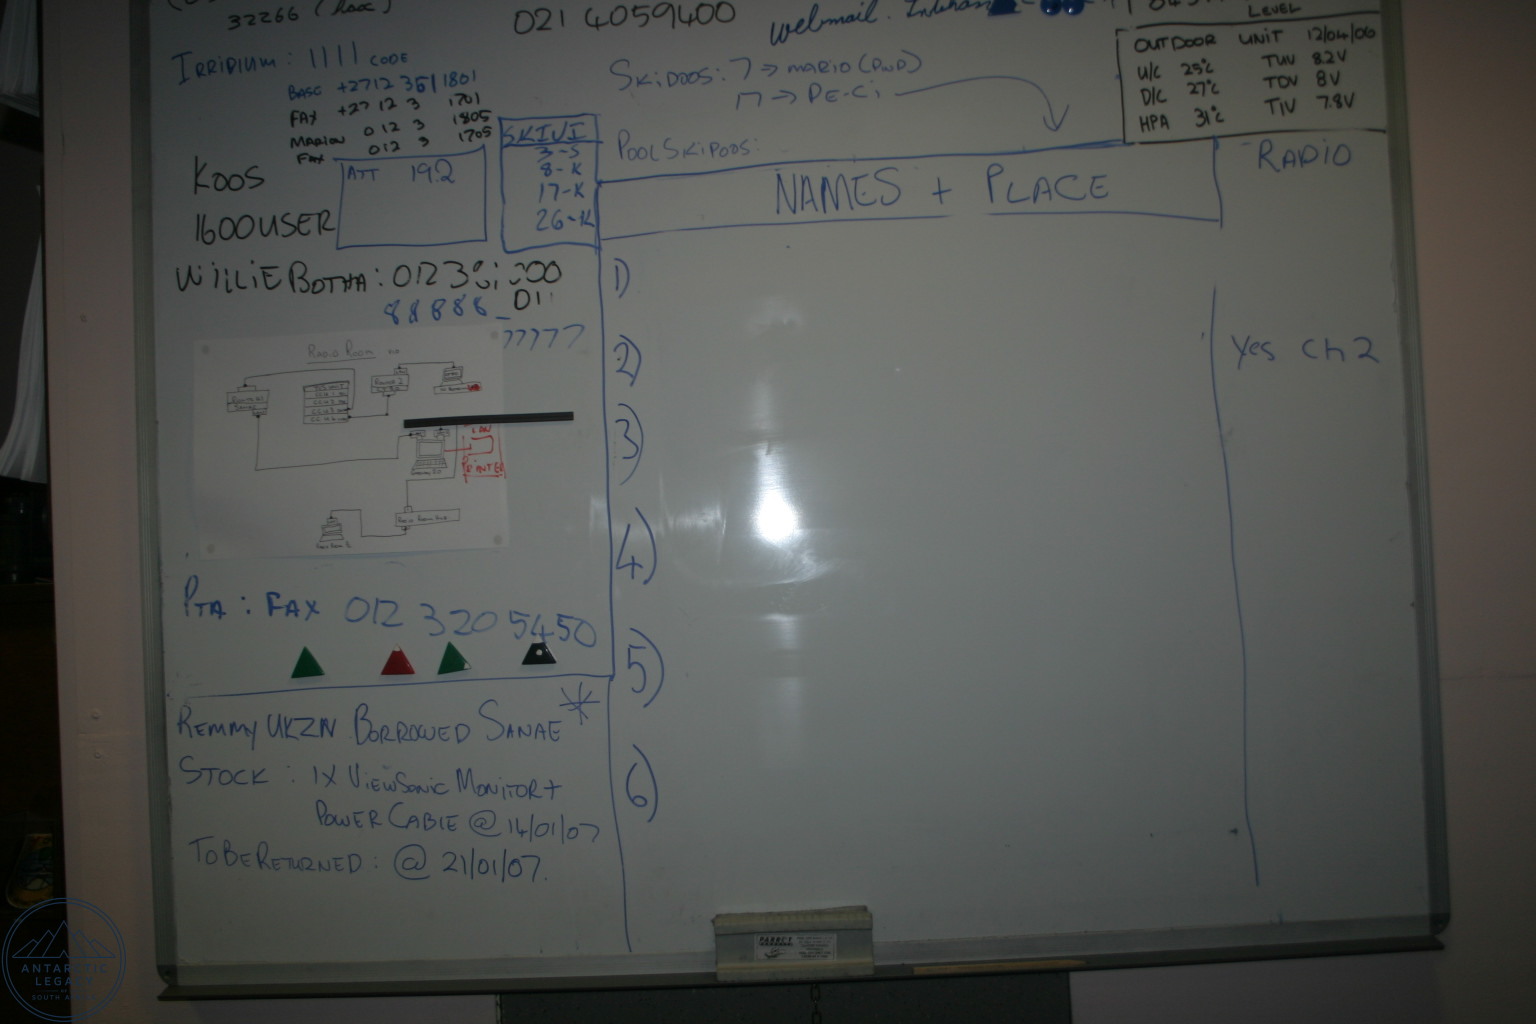 32266 (
021 4059400
webmail.
LEVEL
IRRIDIUM: 1111 CODE
BASE +2712 351 1801
FAX +27 12 3 1701
MARION 012 3 1805
FAX 012 3 1705
SKIDOOS: 7 → MARIO (DWD)
17 → PE-Ci
POOL SKIDOOS:
OUTDOOR UNIT 12/04/06
U/C 25°C TUV 8.2V
D/C 27°C TOV 8V
HPA 31°C TIV 7.8V
KOOS
1600USER
ATT 19.2
SKIVI
3-S
8-K
17-K
26-K
NAMES + PLACE
RADIO
WILLIE BOTHA: 012 3
88888_
77777
1)
2)
3)
4)
5)
6)
Yes Ch 2
RADIO ROOM
LAN
PRINTER
RADIO ROOM
PTA: FAX 012 320 5450
REMMY UKZN BORROWED SANAE *
STOCK: 1X VIEWSONIC MONITOR +
POWER CABLE @ 14/01/07
TO BE RETURNED: @ 21/01/07.
PARROT
ANTARCTIC
LEGACY
OF
SOUTH AFRICA